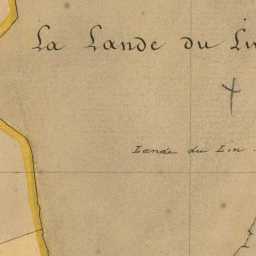 La Lande du Lin
Lande du Lin